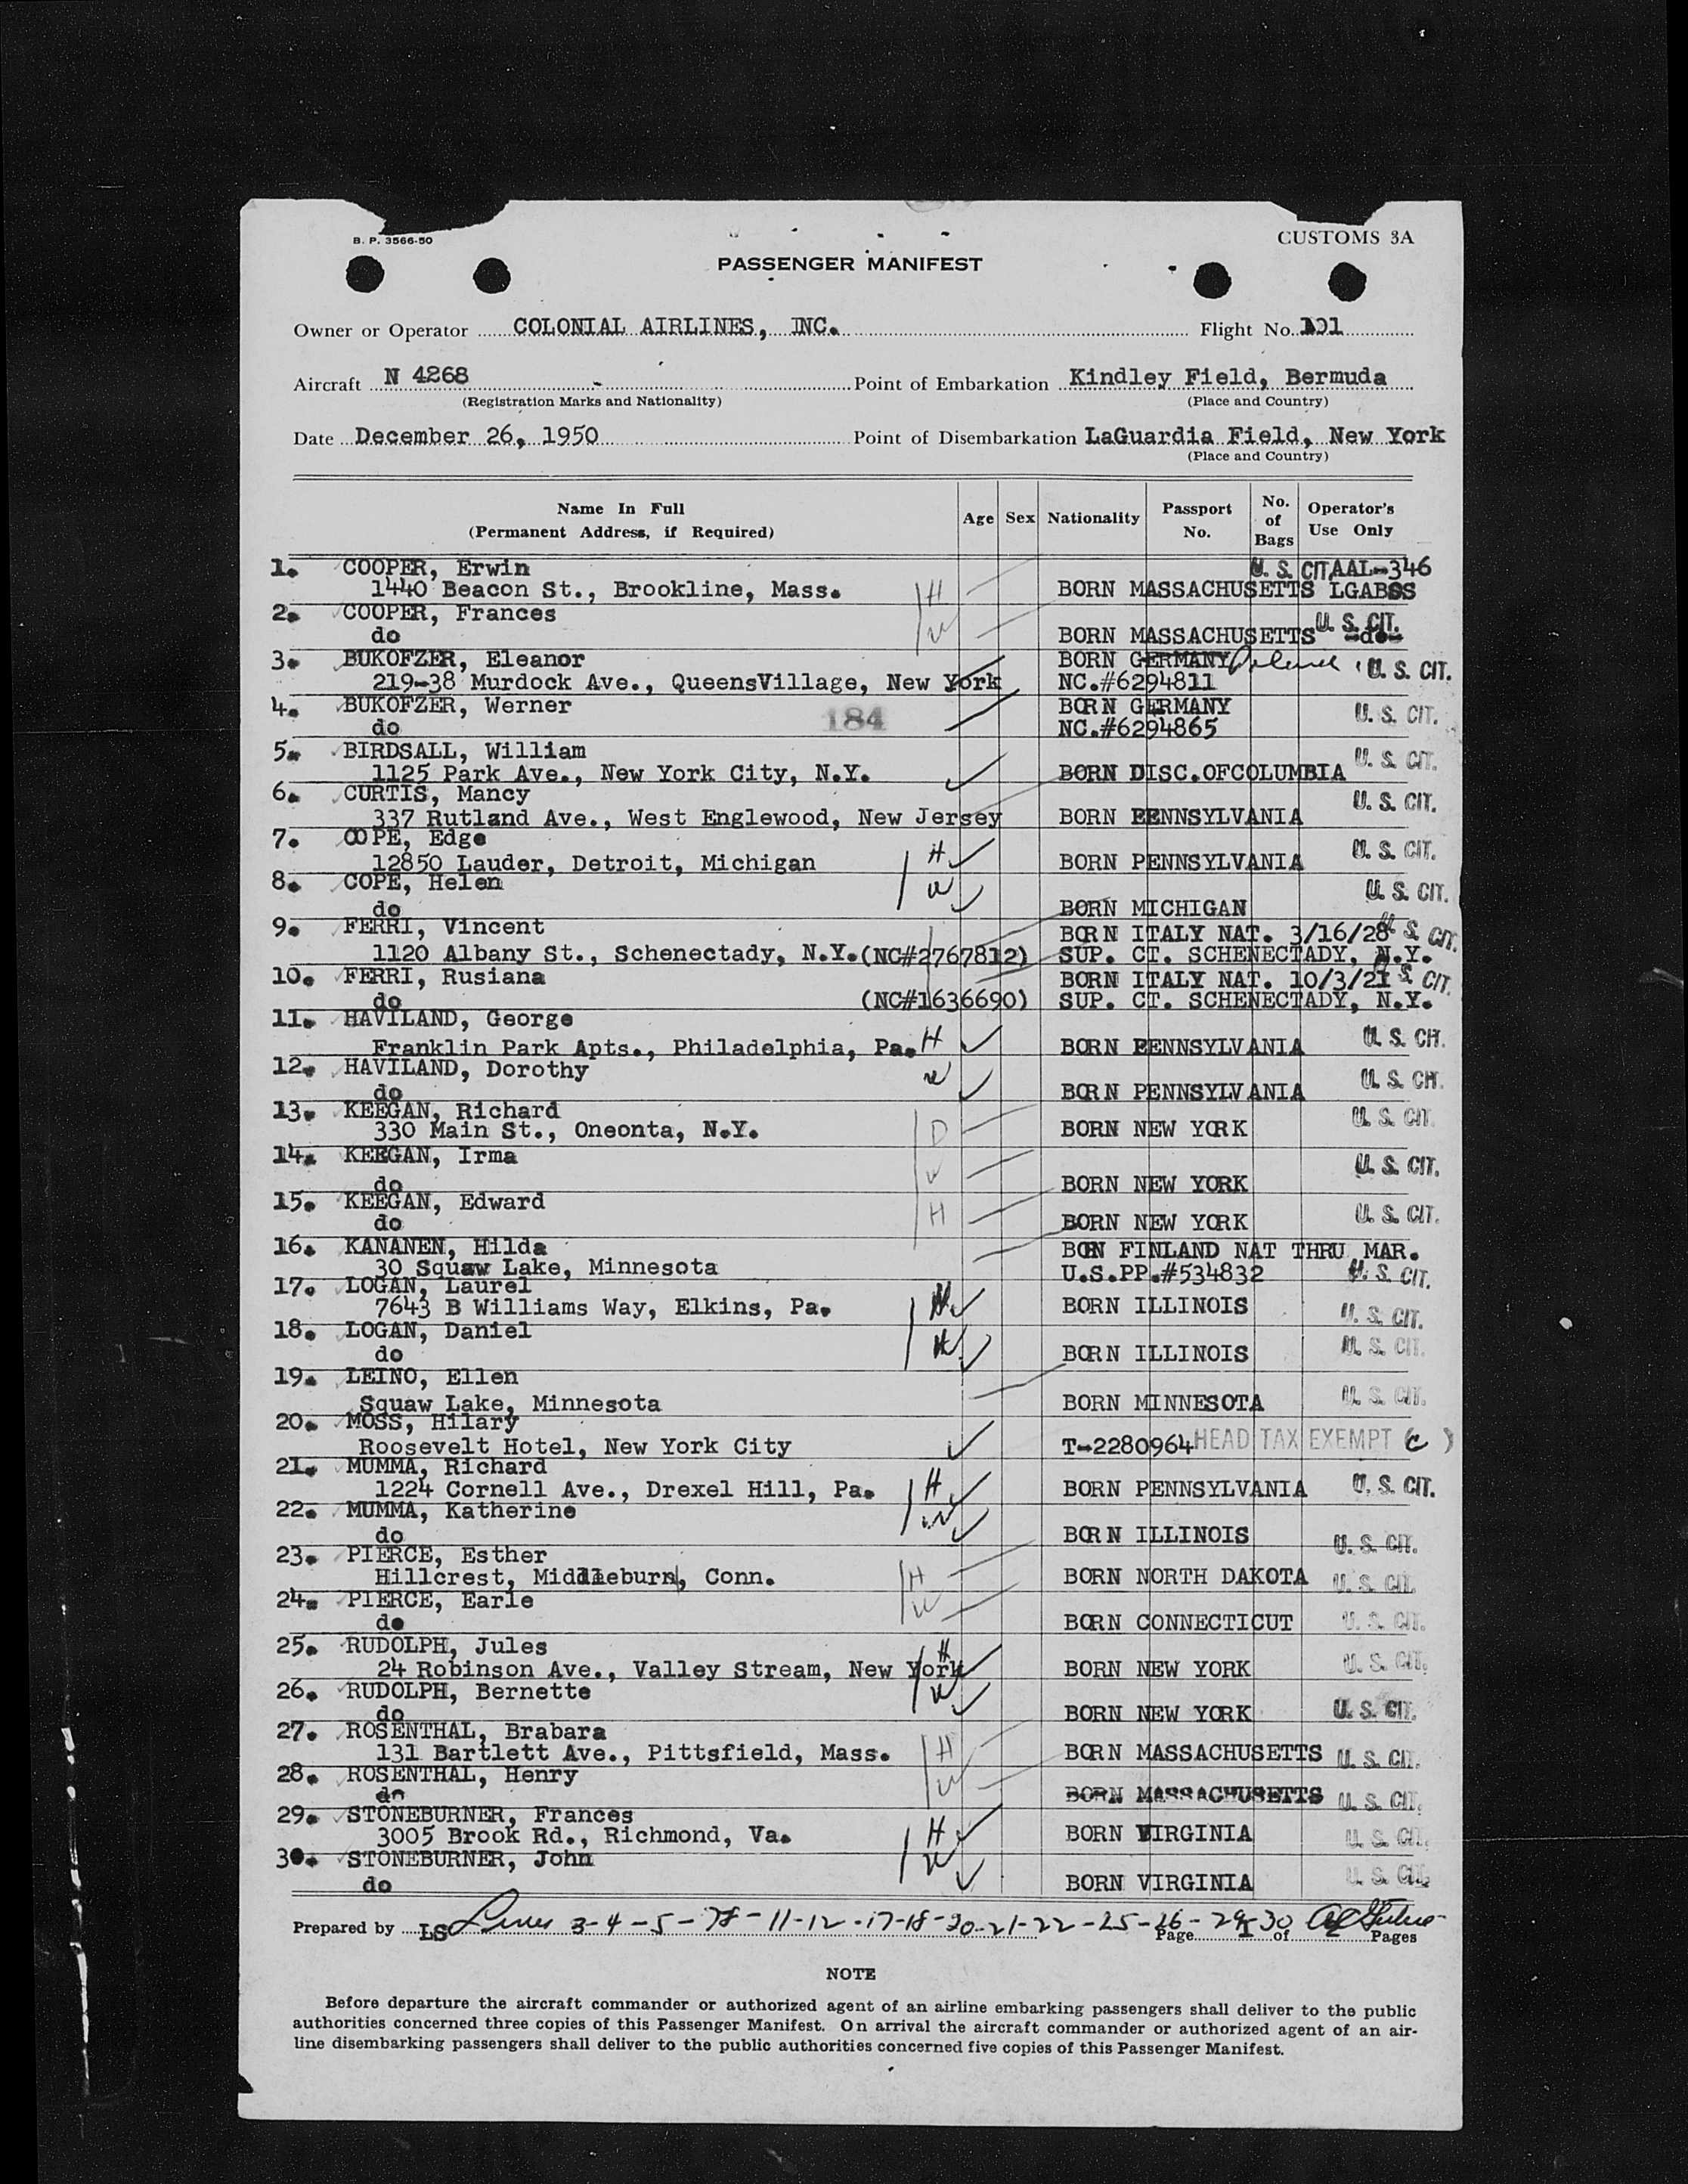 B. P. 3566-50
CUSTOMS 3A
PASSENGER MANIFEST
Owner or Operator COLONIAL AIRLINES, INC. Flight No. 101
Aircraft N 4268 Point of Embarkation Kindley Field, Bermuda
(Registration Marks and Nationality) (Place and Country)
Date December 26, 1950 Point of Disembarkation LaGuardia Field, New York
(Place and Country)
Name In Full (Permanent Address, if Required) Age Sex Nationality Passport No. No. of Bags Operator's Use Only
1. COOPER, Erwin U. S. CIT. AAL-346
1440 Beacon St., Brookline, Mass. H BORN MASSACHUSETTS LGABSS
2. COOPER, Frances U. S. CIT.
do W BORN MASSACHUSETTS -do-
3. BUKOFZER, Eleanor BORN GERMANY Poland U. S. CIT.
219-38 Murdock Ave., QueensVillage, New York NC.#6294811
4. BUKOFZER, Werner 184 BORN GERMANY U. S. CIT.
do NC.#6294865
5. BIRDSALL, William U. S. CIT.
1125 Park Ave., New York City, N.Y. BORN DISC.OFCOLUMBIA
6. CURTIS, Mancy U. S. CIT.
337 Rutland Ave., West Englewood, New Jersey BORN PENNSYLVANIA
7. COPE, Edge U. S. CIT.
12850 Lauder, Detroit, Michigan H BORN PENNSYLVANIA
8. COPE, Helen W U. S. CIT.
do BORN MICHIGAN
9. FERRI, Vincent BORN ITALY NAT. 3/16/28 U. S. CIT.
1120 Albany St., Schenectady, N.Y.(NC#2767812) SUP. CT. SCHENECTADY, N.Y.
10. FERRI, Rusiana BORN ITALY NAT. 10/3/21 U. S. CIT.
do (NC#1636690) SUP. CT. SCHENECTADY, N.Y.
11. HAVILAND, George U. S. CIT.
Franklin Park Apts., Philadelphia, Pa. H BORN PENNSYLVANIA
12. HAVILAND, Dorothy W U. S. CIT.
do BORN PENNSYLVANIA
13. KEEGAN, Richard U. S. CIT.
330 Main St., Oneonta, N.Y. D BORN NEW YORK
14. KEEGAN, Irma W U. S. CIT.
do BORN NEW YORK
15. KEEGAN, Edward H U. S. CIT.
do BORN NEW YORK
16. KANANEN, Hilda BON FINLAND NAT THRU MAR.
30 Squaw Lake, Minnesota U.S.PP.#534832 U. S. CIT.
17. LOGAN, Laurel
7643 B Williams Way, Elkins, Pa. BORN ILLINOIS U. S. CIT.
18. LOGAN, Daniel U. S. CIT.
do H BORN ILLINOIS
19. LEINO, Ellen U. S. CIT.
Squaw Lake, Minnesota BORN MINNESOTA
20. MOSS, Hilary
Roosevelt Hotel, New York City T-2280964 HEAD TAX EXEMPT (C)
21. MUMMA, Richard
1224 Cornell Ave., Drexel Hill, Pa. H BORN PENNSYLVANIA U. S. CIT.
22. MUMMA, Katherine W
do BORN ILLINOIS U. S. CIT.
23. PIERCE, Esther
Hillcrest, Middleburn, Conn. H BORN NORTH DAKOTA U. S. CIT.
24. PIERCE, Earle W
do BORN CONNECTICUT U. S. CIT.
25. RUDOLPH, Jules H
24 Robinson Ave., Valley Stream, New York BORN NEW YORK U. S. CIT.
26. RUDOLPH, Bernette W
do BORN NEW YORK U. S. CIT.
27. ROSENTHAL, Brabara
131 Bartlett Ave., Pittsfield, Mass. H BORN MASSACHUSETTS U. S. CIT.
28. ROSENTHAL, Henry W
do BORN MASSACHUSETTS U. S. CIT.
29. STONEBURNER, Frances
3005 Brook Rd., Richmond, Va. H BORN VIRGINIA U. S. CIT.
30. STONEBURNER, John W
do BORN VIRGINIA U. S. CIT.
Prepared by LS 3-4-5-78-11-12-17-18-20-21-22-25-26-29-30
Page of Pages
NOTE
Before departure the aircraft commander or authorized agent of an airline embarking passengers shall deliver to the public
authorities concerned three copies of this Passenger Manifest. On arrival the aircraft commander or authorized agent of an air-
line disembarking passengers shall deliver to the public authorities concerned five copies of this Passenger Manifest.